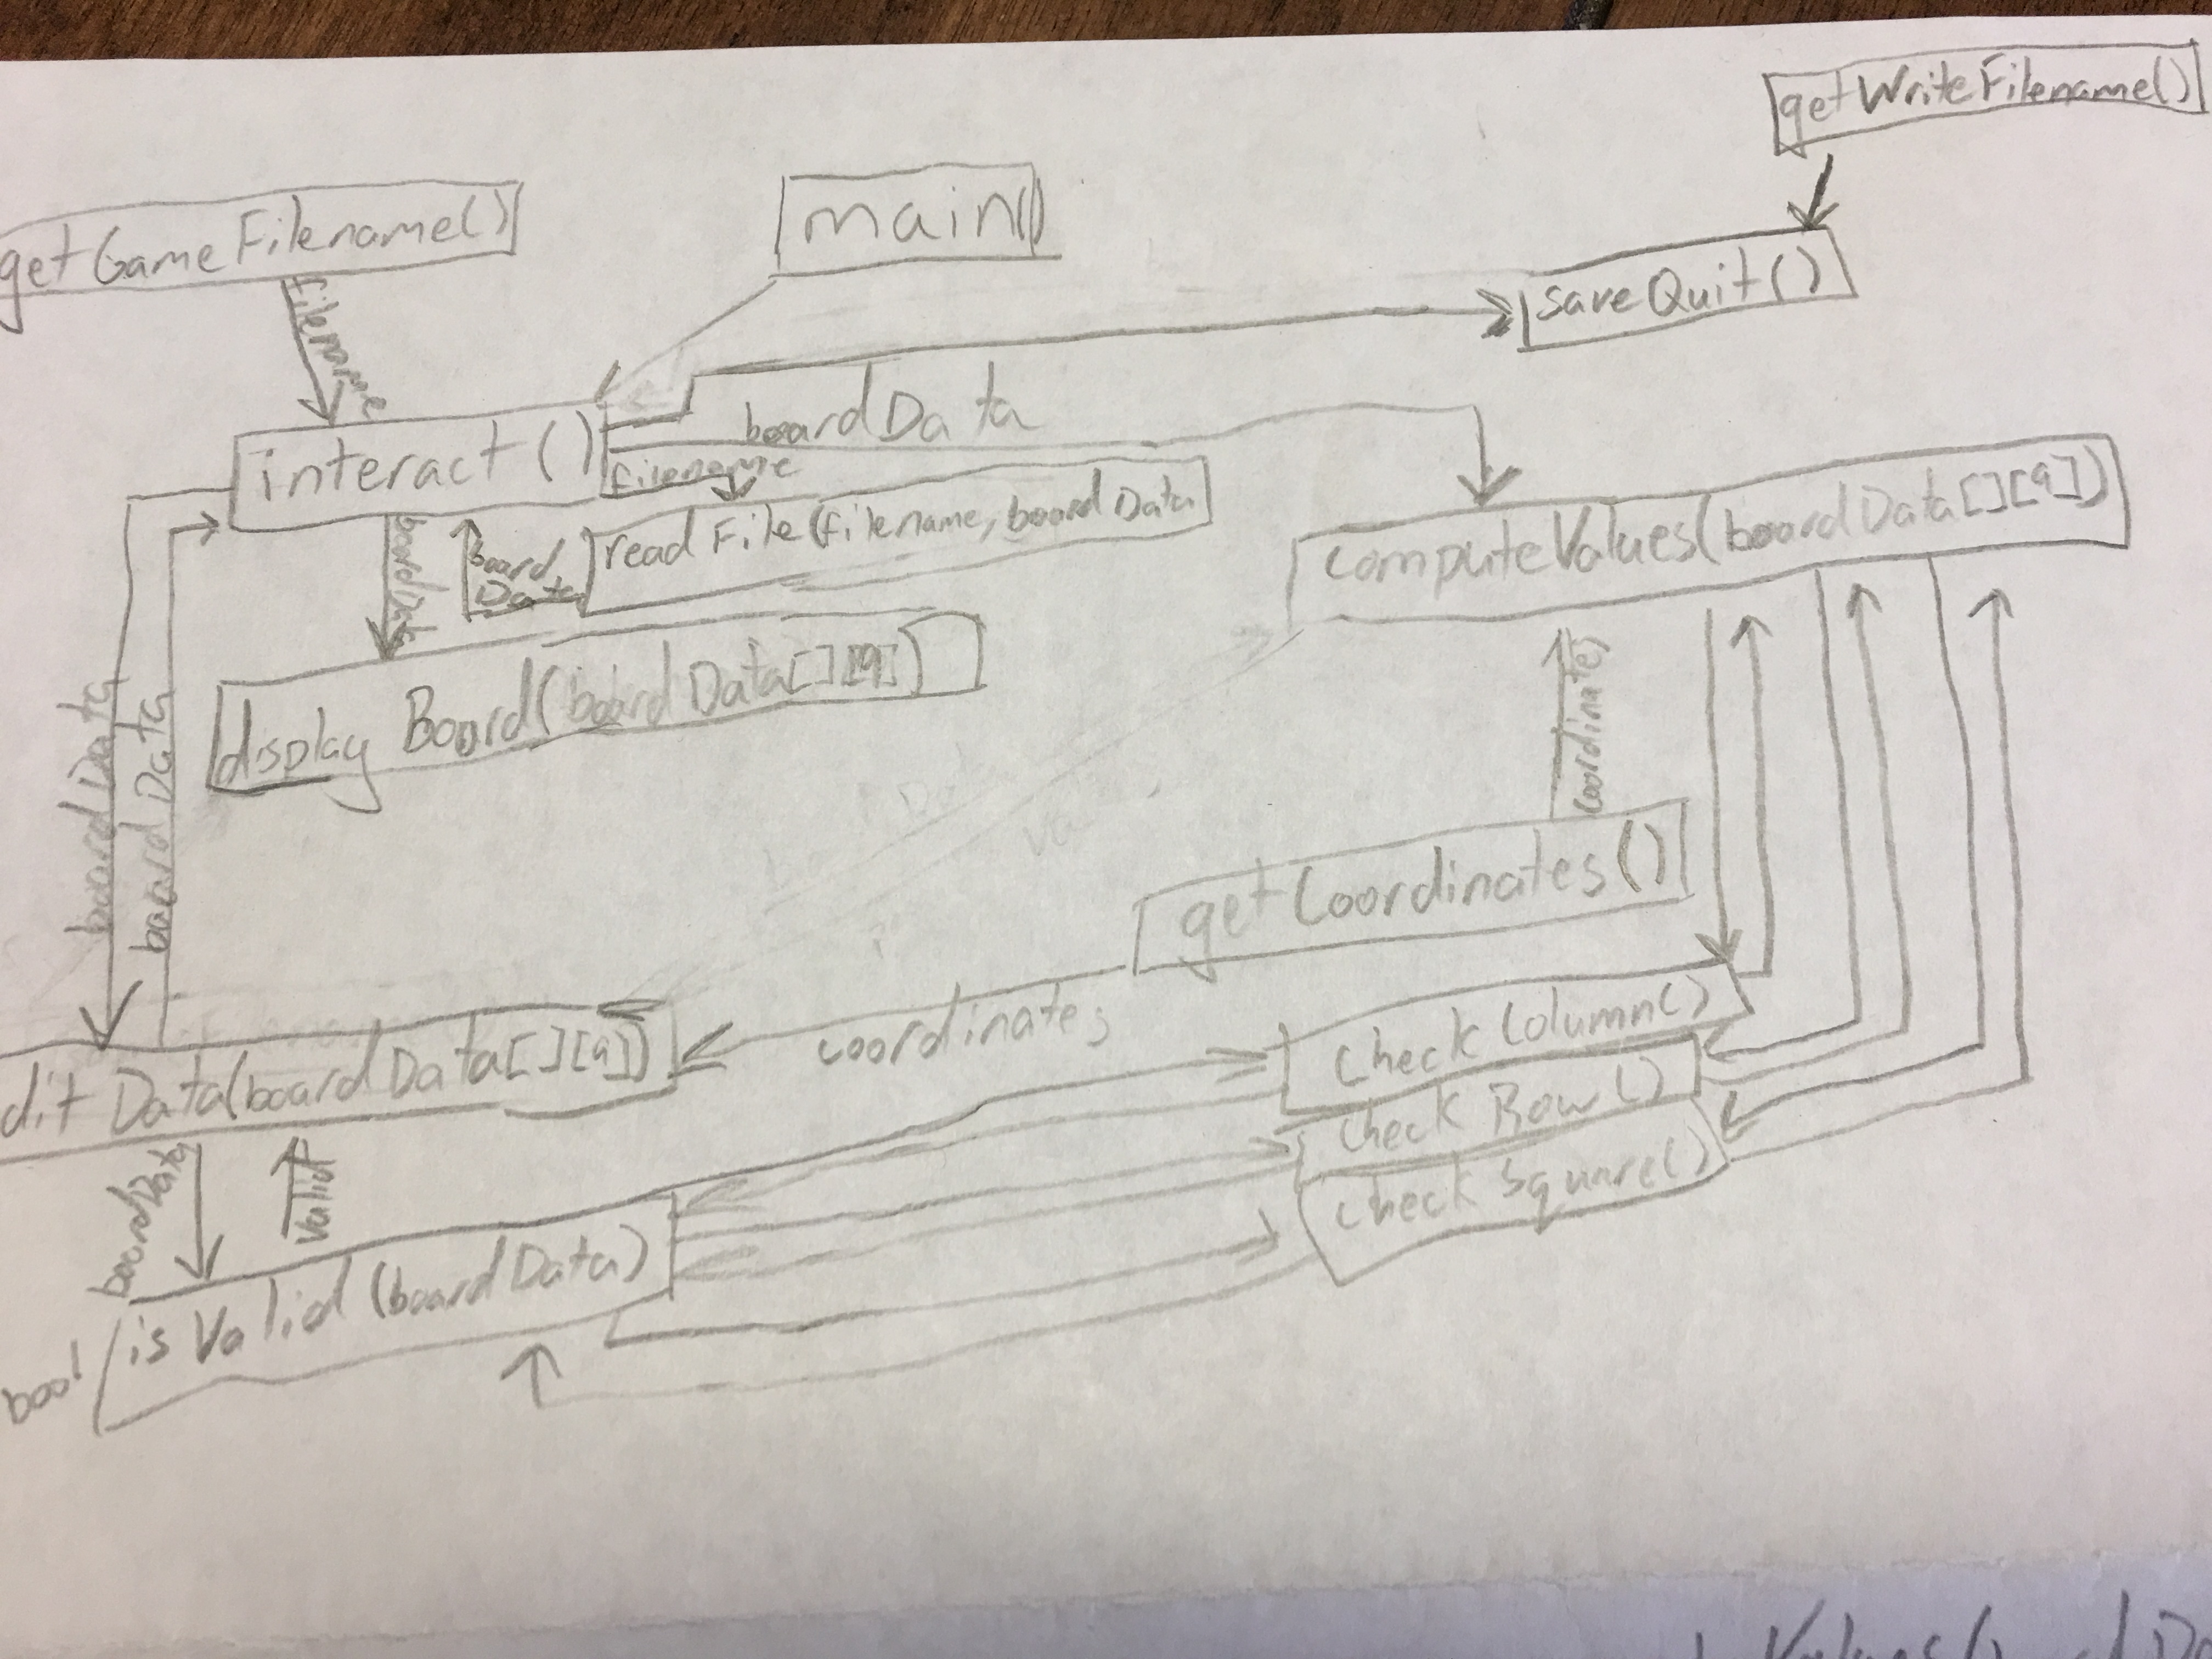 getWriteFilename()
getGameFilename()
main()
saveQuit()
filename
interact()
boardData
filename
readFile(filename, boardData
computeValues(boardData[][9])
boardData
board
Data
displayBoard(boardData[][9])
coordinates
boardData
boardData
getCoordinates()
coordinates
checkColumn()
ditData(boardData[][9])
checkRow()
checkSquare()
boardData
valid
isValid(boardData)
bool